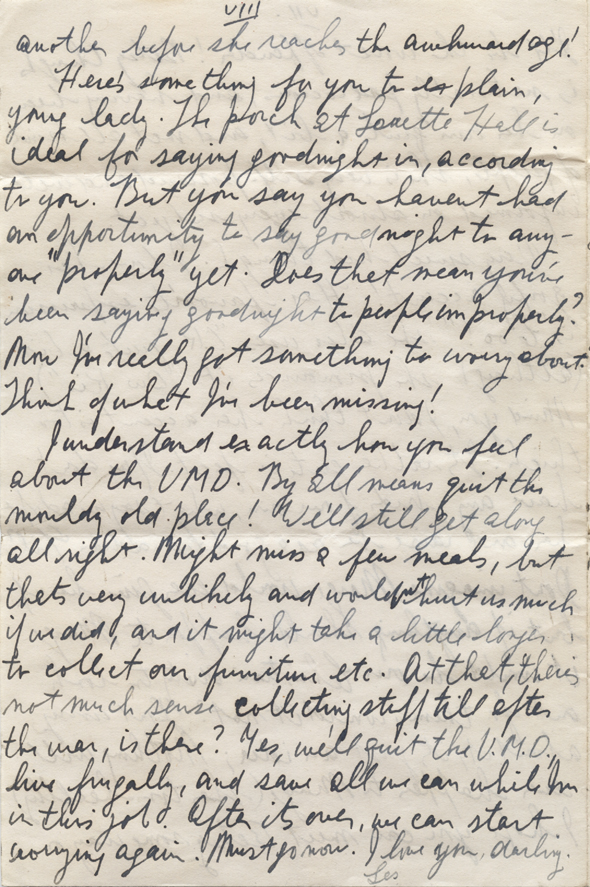 VIII
another before she reaches the awkward age!
Here's something for you to explain,
young lady. The porch at Lorette Hall is
ideal for saying goodnight in, according
to you. But you say you haven't had
an opportunity to say goodnight to any-
one "properly" yet. Does that mean you've
been saying goodnight to people improperly?
Now I've really got something to worry about.
Think of what I've been missing!
I understand exactly how you feel
about the VMD. By all means quit the
mouldy old place! We'll still get along
all right. Might miss a few meals, but
that's very unlikely and wouldn't hurt us much
if we did, and it might take a little longer
to collect our furniture etc. At that, there's
not much sense collecting stuff till after
the war, is there? Yes, we'll quit the V.M.D.,
live frugally, and save all we can while I'm
in this job. After its over, we can start
worrying again. Must go now. I love you, darling.
Les